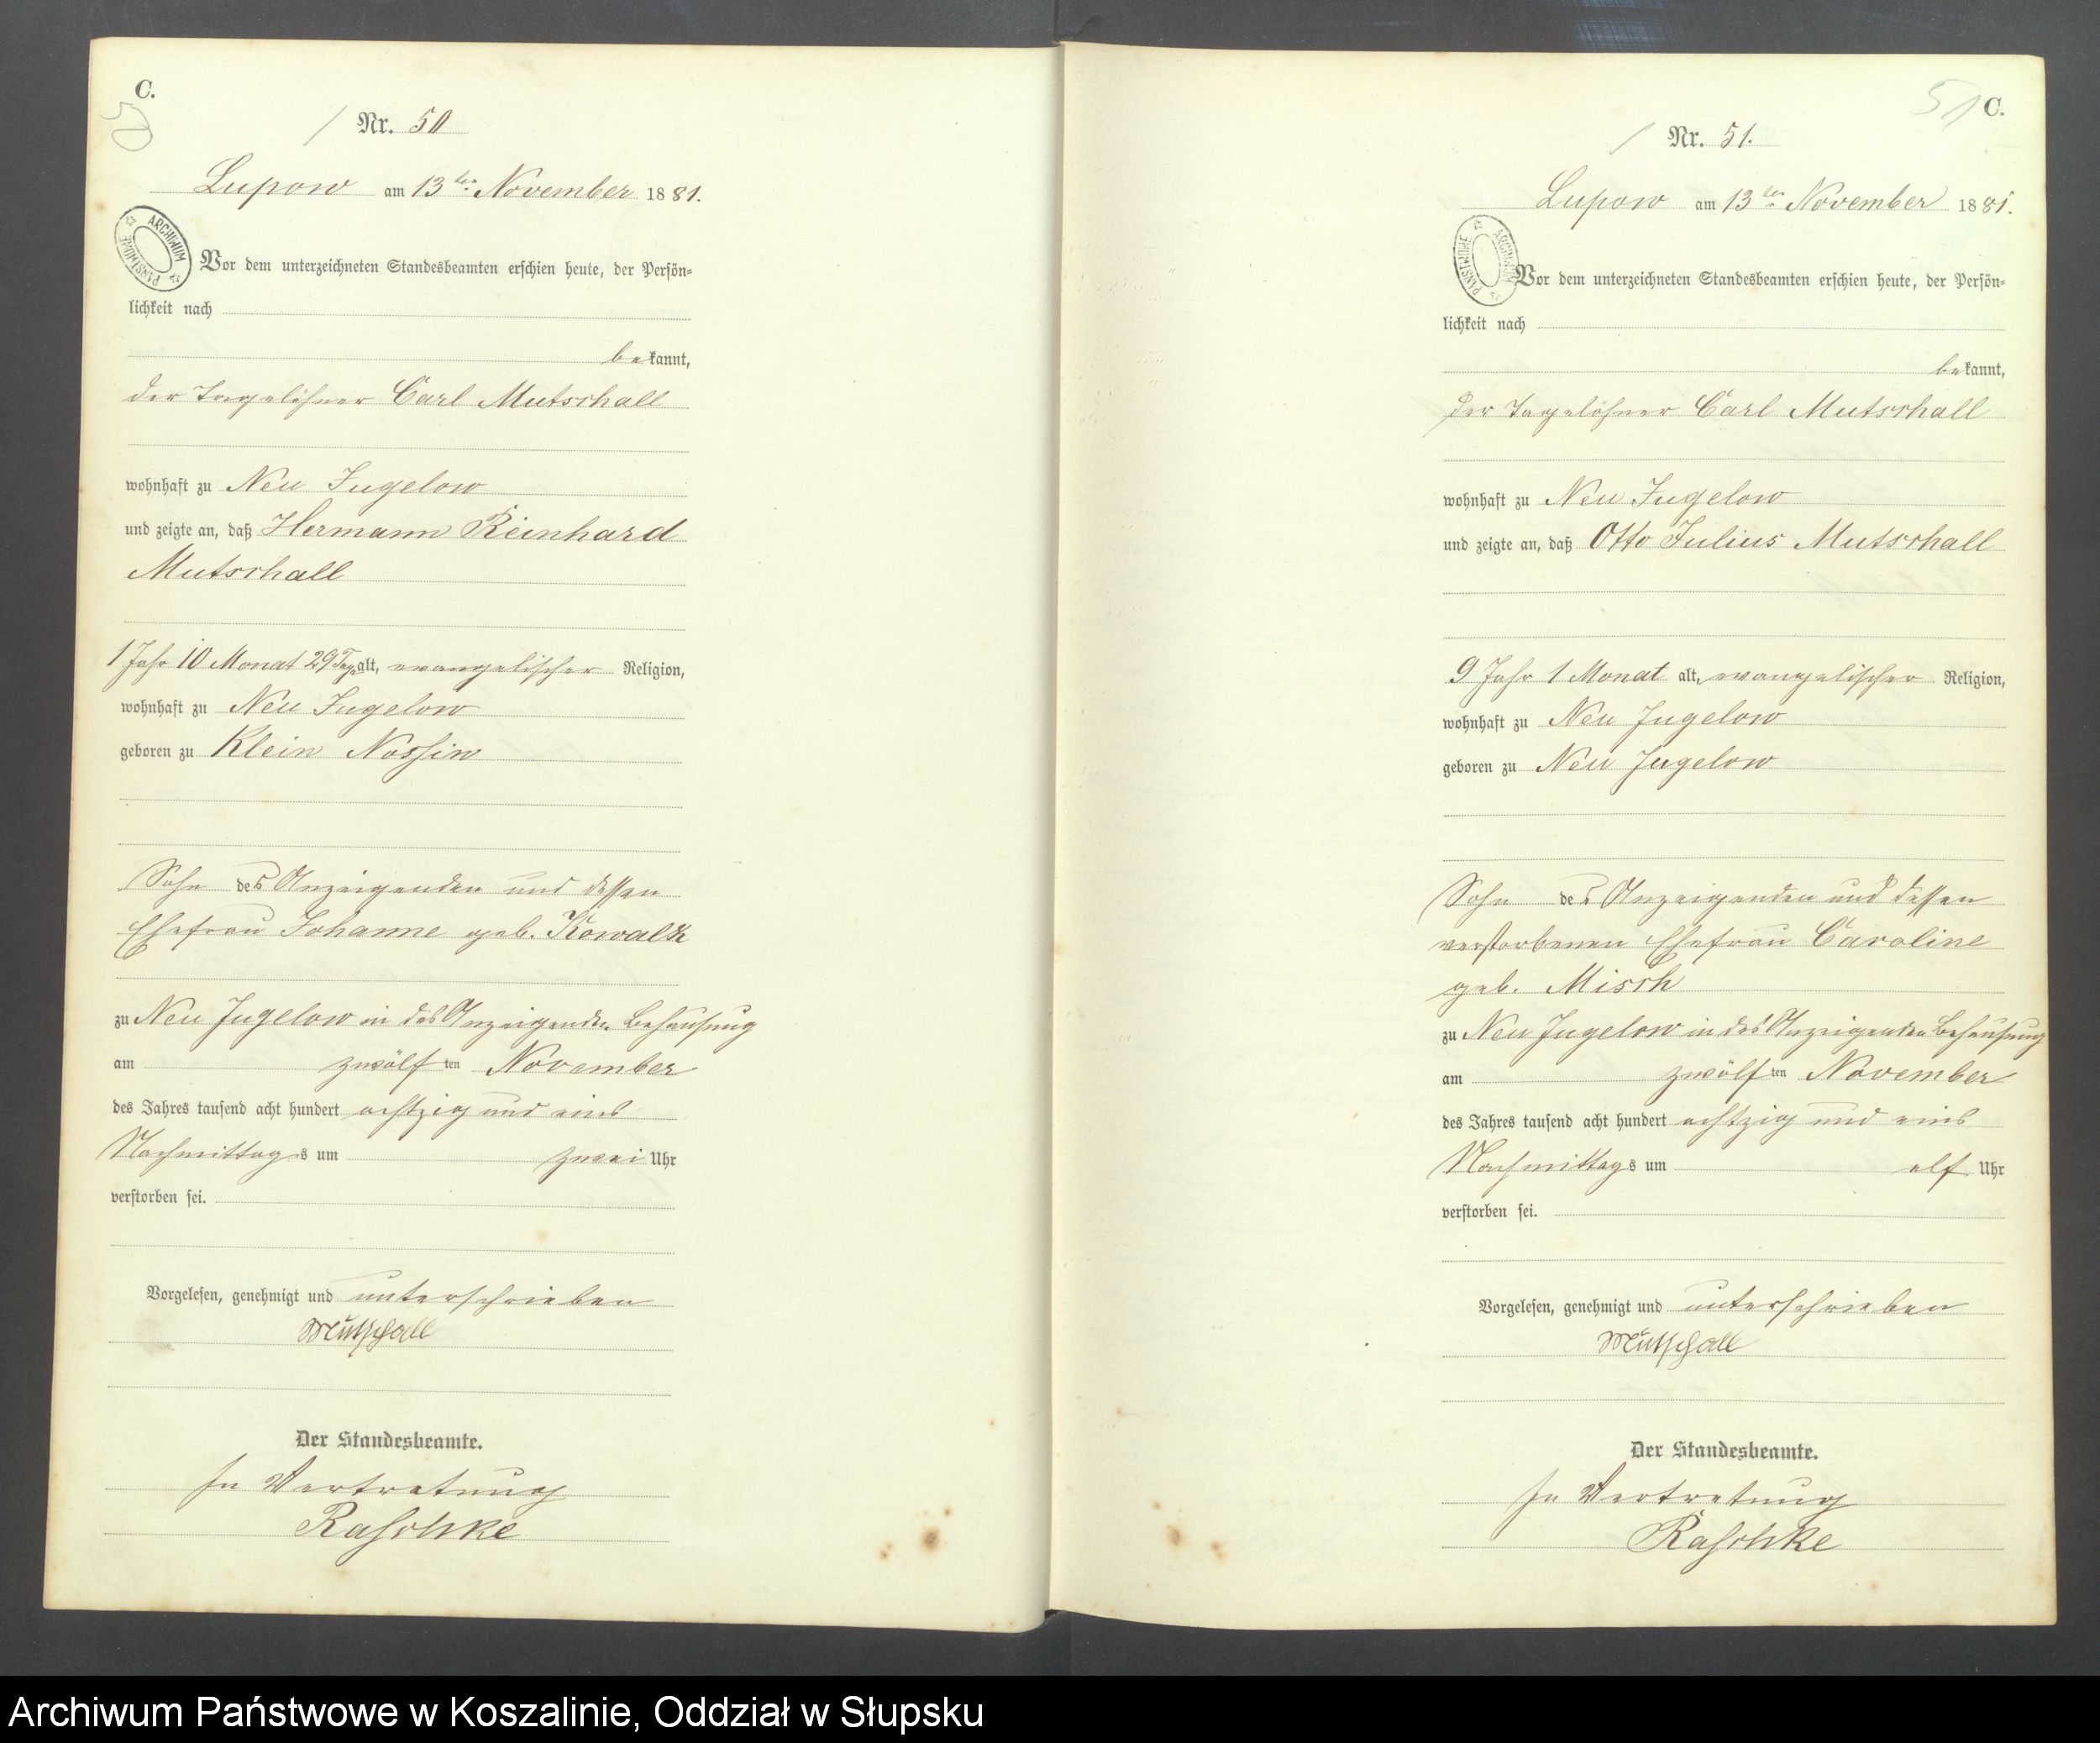 C.
50
Nr. 50
Lupow am 13ten November 1881.
ARCHIWUM PAŃSTWOWE
Vor dem unterzeichneten Standesbeamten erschien heute, der Persön-
lichkeit nach
bekannt,
der Tagelöhner Carl Mutschall
wohnhaft zu Neu Jugelow
und zeigte an, daß Hermann Reinhard
Mutschall
1 Jahr 10 Monat 29 Tage alt, evangelischer Religion,
wohnhaft zu Neu Jugelow
geboren zu Klein Nossin
Sohn des Anzeigenden und dessen
Ehefrau Johanne geb. Kowalk
zu Neu Jugelow in des Anzeigenden Behausung
am zwölften November
des Jahres tausend acht hundert achtzig und eins
Nachmittags um zwei Uhr
verstorben sei.
Vorgelesen, genehmigt und unterschrieben
Mutschall
Der Standesbeamte.
In Vertretung
Raschke
51 C.
Nr. 51.
Lupow am 13ten November 1881.
ARCHIWUM PAŃSTWOWE
Vor dem unterzeichneten Standesbeamten erschien heute, der Persön-
lichkeit nach
bekannt,
der Tagelöhner Carl Mutschall
wohnhaft zu Neu Jugelow
und zeigte an, daß Otto Julius Mutschall
9 Jahr 1 Monat alt, evangelischer Religion,
wohnhaft zu Neu Jugelow
geboren zu Neu Jugelow
Sohn des Anzeigenden und dessen
verstorbenen Ehefrau Caroline
geb. Misch
zu Neu Jugelow in des Anzeigenden Behausung
am zwölften November
des Jahres tausend acht hundert achtzig und eins
Nachmittags um elf Uhr
verstorben sei.
Vorgelesen, genehmigt und unterschrieben
Mutschall
Der Standesbeamte.
In Vertretung
Raschke
Archiwum Państwowe w Koszalinie, Oddział w Słupsku